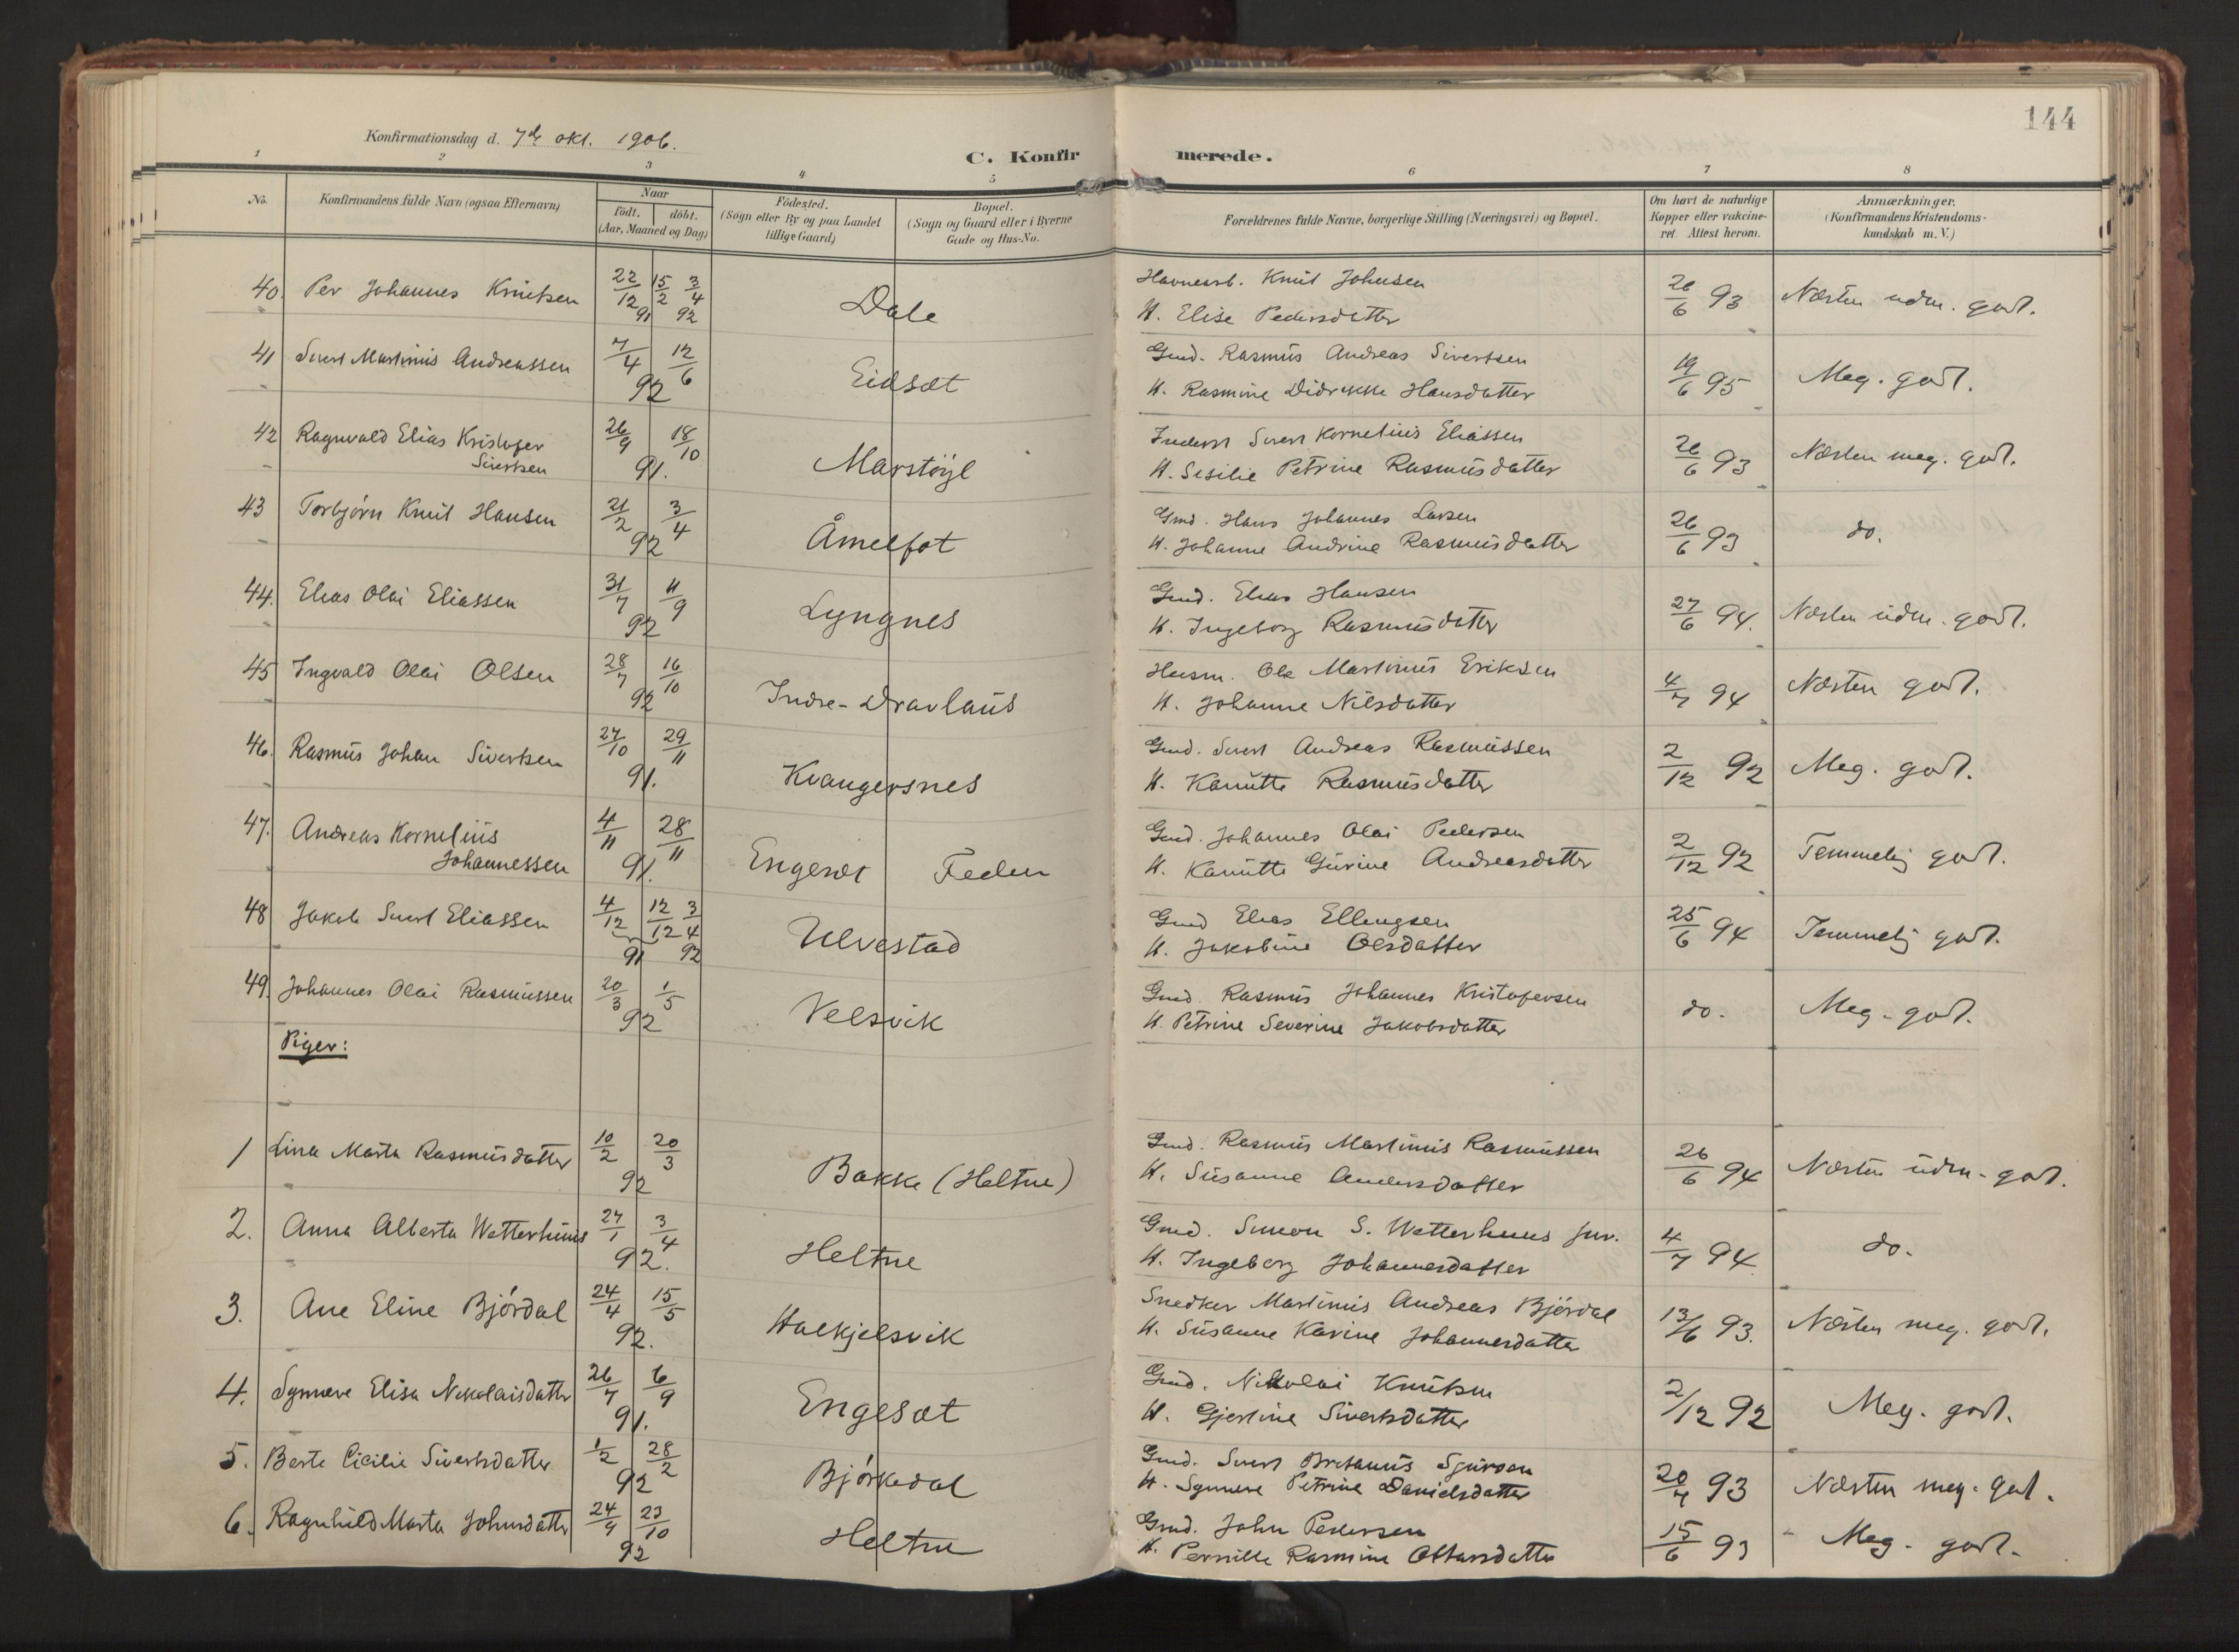 144
Konfirmationsdag d. 7de okt. 1906.
C. Konfirmerede.
1 2 3 4 5 6 7 8
No. Konfirmandens fulde Navn (ogsaa Efternavn) Naar født. døbt. (Aar, Maaned og Dag) Fødested. (Sogn eller By og paa Landet tillige Gaard) Bopæl. (Sogn og Gaard eller i Byerne Gade og Hus-No. Forældrenes fulde Navne, borgerlige Stilling (Næringsvei) og Bopæl. Om havt de naturlige Kopper eller vakcineret. Attest herom. Anmærkninger. (Konfirmandens Kristendomskundskab m. V.)
40. Per Johannes Knutsen 22/12 91 15/2 3/4 92 Dale Havnearb. Knut Johnsen 26/6 93 Næsten udm. godt.
H. Elise Pedersdatter
41 Sivert Martinus Andreassen 7/4 12/6 92 Eidsæt Gmd. Rasmus Andreas Sivertsen 19/6 95 Meg. godt.
H. Rasmine Didrikke Hansdatter
42 Ragnvald Elias Kristofer 26/9 18/10 91. Marstøyl Inderst Sivert Kornelius Eliassen 26/6 93 Næsten meg. godt.
Sivertsen H. Sesilie Petrine Rasmusdatter
43 Torbjørn Knut Hansen 21/2 3/4 92 Åmelfot Gmd. Hans Johannes Larsen 26/6 93 do.
H. Johanne Andrine Rasmusdatter
44. Elias Olai Eliassen 31/7 11/9 92 Lyngnes Gmd. Elias Hansen 27/6 94. Næsten udm. godt.
H. Ingeborg Rasmusdatter
45 Ingvald Olai Olsen 28/7 16/10 92 Indre-Dravlaus Husm. Ole Martinus Eriksen 4/7 94 Næsten godt.
H. Johanne Nilsdatter
46. Rasmus Johan Sivertsen 27/10 29/11 91. Kvangersnes Gmd. Sivert Andreas Rasmussen 2/12 92 Meg. godt.
H. Kanutte Rasmusdatter
47. Andreas Kornelius 4/11 28/11 91. Engesæt Feden Gmd. Johannes Olai Pedersen 2/12 92 Temmelig godt.
Johannessen H. Kanutte Gurine Andreasdatter
48 Jakob Sivert Eliassen 4/12 12/12 91 3/4 92 Ulvestad Gmd Elias Ellingsen 25/6 94 Temmelig godt.
H. Jakobine Olsdatter
49. Johannes Olai Rasmussen 20/3 1/5 92 Velsvik Gmd. Rasmus Johannes Kristofersen do. Meg. godt.
H. Petrine Severine Jakobsdatter
Piger:
1 Lina Marta Rasmusdatter 10/2 20/3 92 Bakke (Heltne) Gmd. Rasmus Martinus Rasmussen 26/6 94 Næsten udm. godt.
H. Susanne Andersdatter
2. Anna Alberta Wetterhuus 27/1 3/4 92. Heltne Gmd. Simon S. Wetterhuus jun. 4/7 94 do.
H. Ingeborg Johannesdatter
3. Ane Eline Bjørdal 24/4 15/5 92. Halkjelsvik Snedker Martinus Andreas Bjørdal 13/6 93. Næsten meg. godt.
H. Susanne Karine Johannesdatter
4. Synneve Elisa Nikolaisdatter 26/7 6/9 91. Engesæt Gmd. Nikolai Knutsen 2/12 92 Meg. godt.
H. Gjertine Sivertsdatter
5. Berte Cicilie Sivertsdatter 1/2 28/2 92 Bjørkedal Gmd. Sivert Sjursen 20/7 93 Næsten meg. godt.
H. Synneve Petrine Danielsdatter
6. Ragnhild Marta Johnsdatter 24/9 23/10 92 Heltne Gmd. John Pedersen 15/6 93 Meg. godt.
H. Pernille Rasmine Ottarsdatter